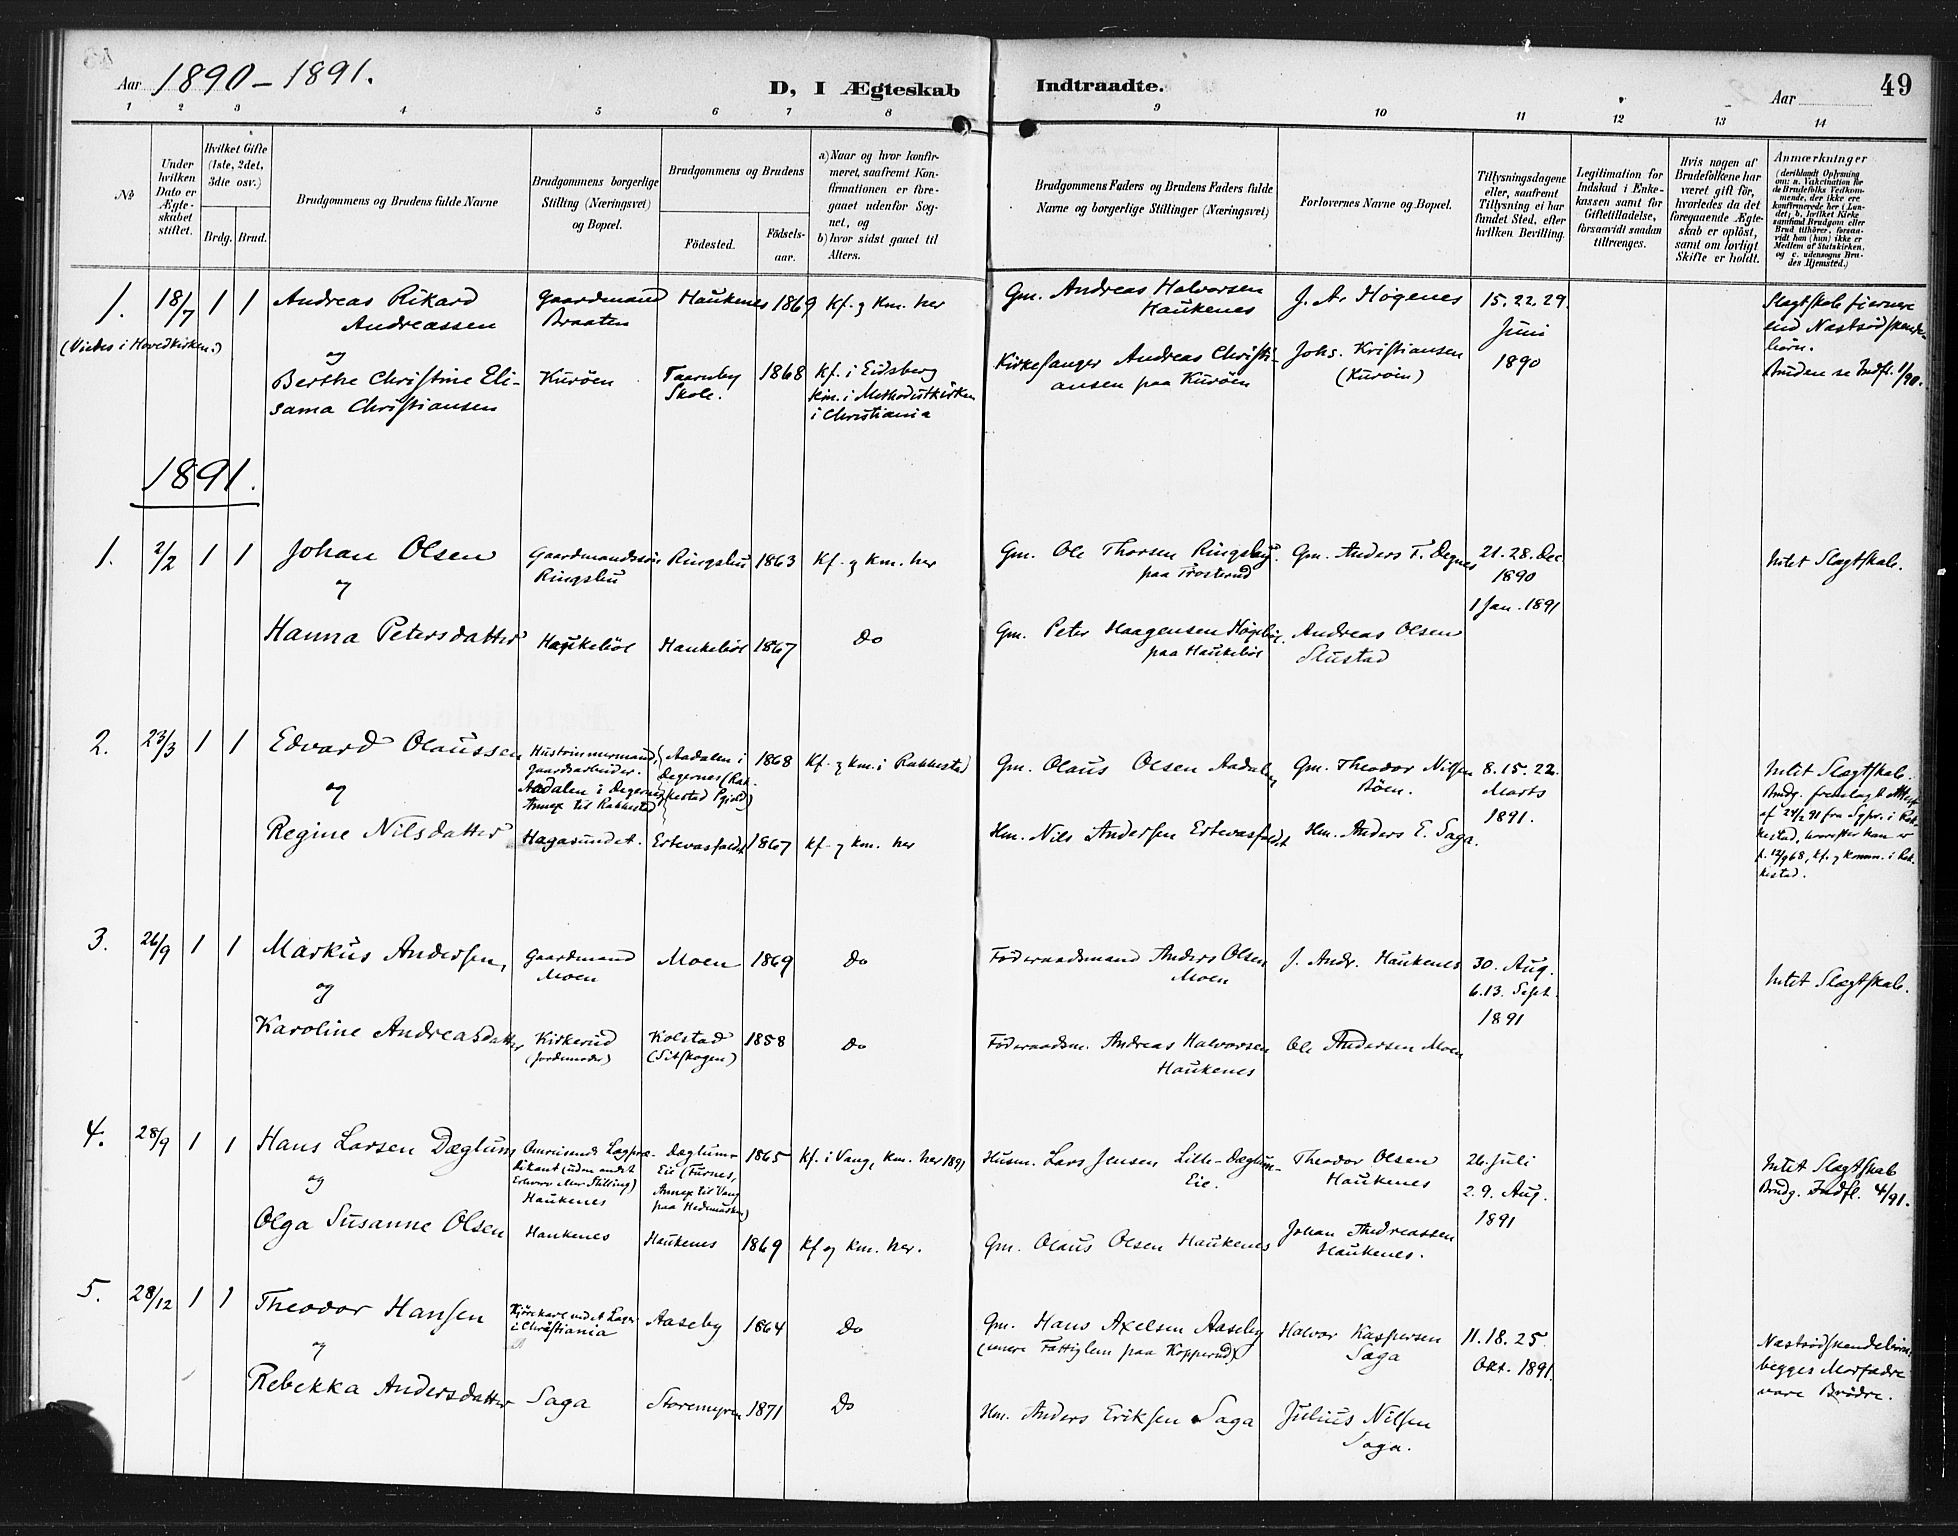 Aar 1890–1891.
D, I Ægteskab Indtraadte.
Aar
49
1 2 3 4 5 6 7 8 9 10 11 12 13 14
No
Under hvilken Dato er Ægteskabet stiftet.
Hvilket Gifte (1ste, 2det, 3die osv.)
Brdg. Brud.
Brudgommens og Brudens fulde Navne
Brudgommens borgerlige Stilling (Næringsvei) og Bopæl.
Brudgommens og Brudens
Fødested.
Fødselsaar.
a) Naar og hvor konfirmeret, saafremt Konfirmationen er foregaaet udenfor Sognet, og
b) hvor sidst gaaet til Alters.
Brudgommens Faders og Brudens Faders fulde Navne og borgerlige Stillinger (Næringsvei)
Forlovernes Navne og Bopæl.
Tillysningsdagene eller, saafremt Tillysning ei har fundet Sted, efter hvilken Bevilling.
Legitimation for Indskud i Enkekassen samt for Giftetilladelse, forsaavidt saadan tiltrænges.
Hvis nogen af Brudefolkene har været gift før, hvorledes da det foregaaende Ægteskab er opløst, samt om lovligt Skifte er holdt.
Anmærkninger
(deriblandt Oplysning om: a. Vakcination for de Brudefolks Vedkommende, der ikke ere konfirmerede her i Landet; b. hvilket Kirkesamfund Brudgom eller Brud tilhører, forsaavidt han (hun) ikke er Medlem af Statskirken, og c. udensogns Brudes Hjemsted.)
1. 18/7 1 1 Andreas Rikard Andreassen
(Viedes i Hovedkirken.)
Gaardmand Braaten
Haukenes 1869 Kf. og Km. her
Gm. Andreas Halvorsen Haukenes
J. Ar Høgenes
15. 22. 29. Juni 1890
Slagtskab fjernere end Næstsødskendebørn.
Bruden se Indfl. 1/90.
og
Berthe Christine Elisama Christiansen
Kurøen
Taarnby Skole.
1868 Kf. i Eidsberg km. i Methodistkirken i Christiania
Kirkesanger Andreas Christiansen paa Kurøen
Johs. Kristiansen (Kurøin)
1891.
1. 2/2 1 1 Johan Olsen
Gaardmandssøn Ringsbu
Ringsbu 1863 Kf. og Km. her
Gm. Ole Thorsen Ringsby paa Trosterud
Gm. Anders T. Degnes
21. 28. Dec 1890
1 Jan. 1891
Intet Slægtskab.
og
Hanna Petersdatter
Haukebøl Haukebøl 1867 Do
Gm. Peter Haagensen Høgebøl paa Haukebøl
Andreas Olsen Slustad
2. 23/3 1 1 Edvard Olaussen
Hustømmermand, Gaardsarbeider. Aadalen i Degernes, Annex til Rakkestad
Aadalen i Degernes (Rakkestad Pgjeld)
1868 Kf. og km. i Rakkestad
Gm. Olaus Olsen Aadalen
Gm. Theodor Nilsen Bøen.
8. 15. 22. Marts 1891.
Intet Slagtskab.
Brudg. fremlagt Attest af 24/2 91 fra Sgpr. i Rakkestad, hvorefter han er f. 12/9 68, kf. og komm. i Rakkestad.
og
Regine Nilsdatter
Hagasundet. Ertevasfaldt 1867 Kf. og km. her
Hm. Nils Andersen Ertevasfaldt
Hm. Anders E. Saga.
3. 26/9 1 1 Markus Andersen,
Gaardmand Moen
Moen 1869 Do
Føderaadsmand Anders Olsen Moen
J. Andr. Haukenes
30. Aug. 6. 13. Sept. 1891
Intet Slægtskab.
og
Karoline Andreasdatter
Kirkerud (Jordmoder)
Kolstad (Sitskogen)
1858 Do
Føderaadsm. Andreas Halvorsen Haukenes
Ole Andersen Moen
4. 28/9 1 1 Hans Larsen Dæglum
Omreisende Lægprædikant (uden andet Erhverv eller Stilling) Haukenes
Dæglum-Eie (Furnes, Annex til Vang paa Hedemarken)
1865 Kf. i Vang, Km. her 1891
Husm. Lars Jensen Lille-Dæglum-Eie.
Theodor Olsen Haukenes
26. Juli 2. 9. Aug. 1891
Intet Slægtskab
Brudg. Indfl. 4/91.
og
Olga Susanne Olsen
Haukenes Haukenes 1869 Kf og Km. her.
Gm. Olaus Olsen Haukenes
Johan Andreassen Haukenes.
5. 28/12 1 1 Theodor Hansen
Kjørekarl ved et Lager i Christiania
Aaseby 1864 Do
Gm. Hans Axelsen Aaseby (senere Fattiglem paa Kopperud)
Halvor Kaspersen Saga
11. 18. 25. Okt. 1891.
Næstsødskendebørn, begges Morfædre vare Brødre.
og
Rebekka Andersdatter
Saga Storemyren 1871 Do
Hm. Anders Eriksen Saga
Julius Nilsen Saga.